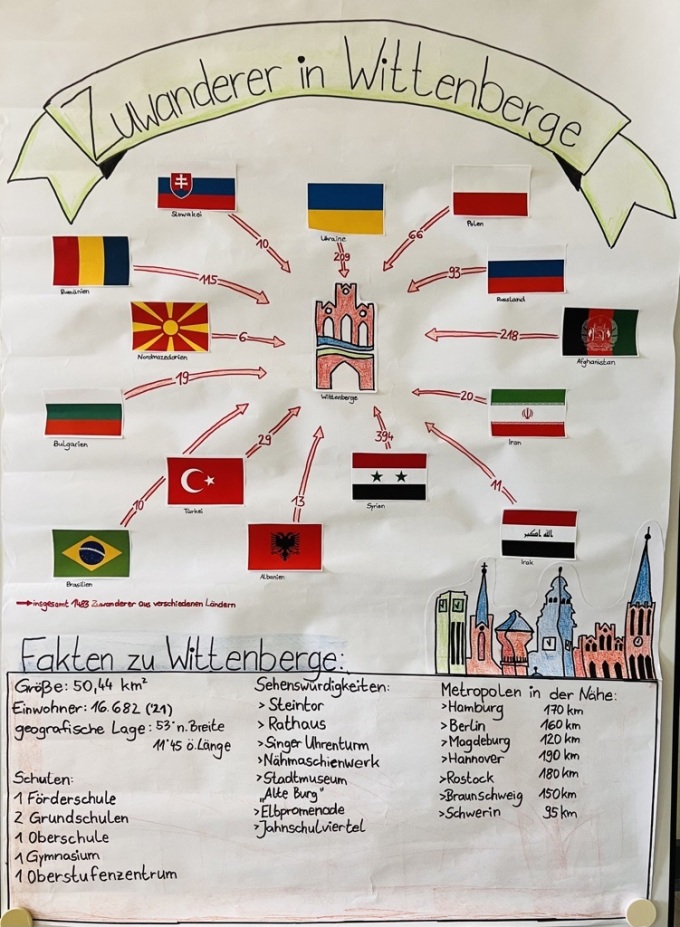 Zuwanderer in Wittenberge
Slowakei
Ukraine
Polen
10
209
66
Rumänien
115
93
Russland
Nordmazedonien
6
218
Afghanistan
Bulgarien
19
Wittenberge
20
Iran
Türkei
29
394
Syrien
11
10
13
الله اكبر
Brasilien
Albanien
Irak
insgesamt 1483 Zuwanderer aus verschiedenen Ländern
Fakten zu Wittenberge:
Größe: 50,44 km²
Einwohner: 16.682 ('21)
geografische Lage: 53° n.Breite
11°45 ö.Länge
Schulen:
1 Förderschule
2 Grundschulen
1 Oberschule
1 Gymnasium
1 Oberstufenzentrum
Sehenswürdigkeiten:
> Steintor
> Rathaus
> Singer Uhrenturm
> Nähmaschienwerk
> Stadtmuseum
„Alte Burg"
> Elbpromenade
> Jahnschulviertel
Metropolen in der Nähe:
> Hamburg 170 km
> Berlin 160 km
> Magdeburg 120 km
> Hannover 190 km
> Rostock 180 km
> Braunschweig 150 km
> Schwerin 95 km